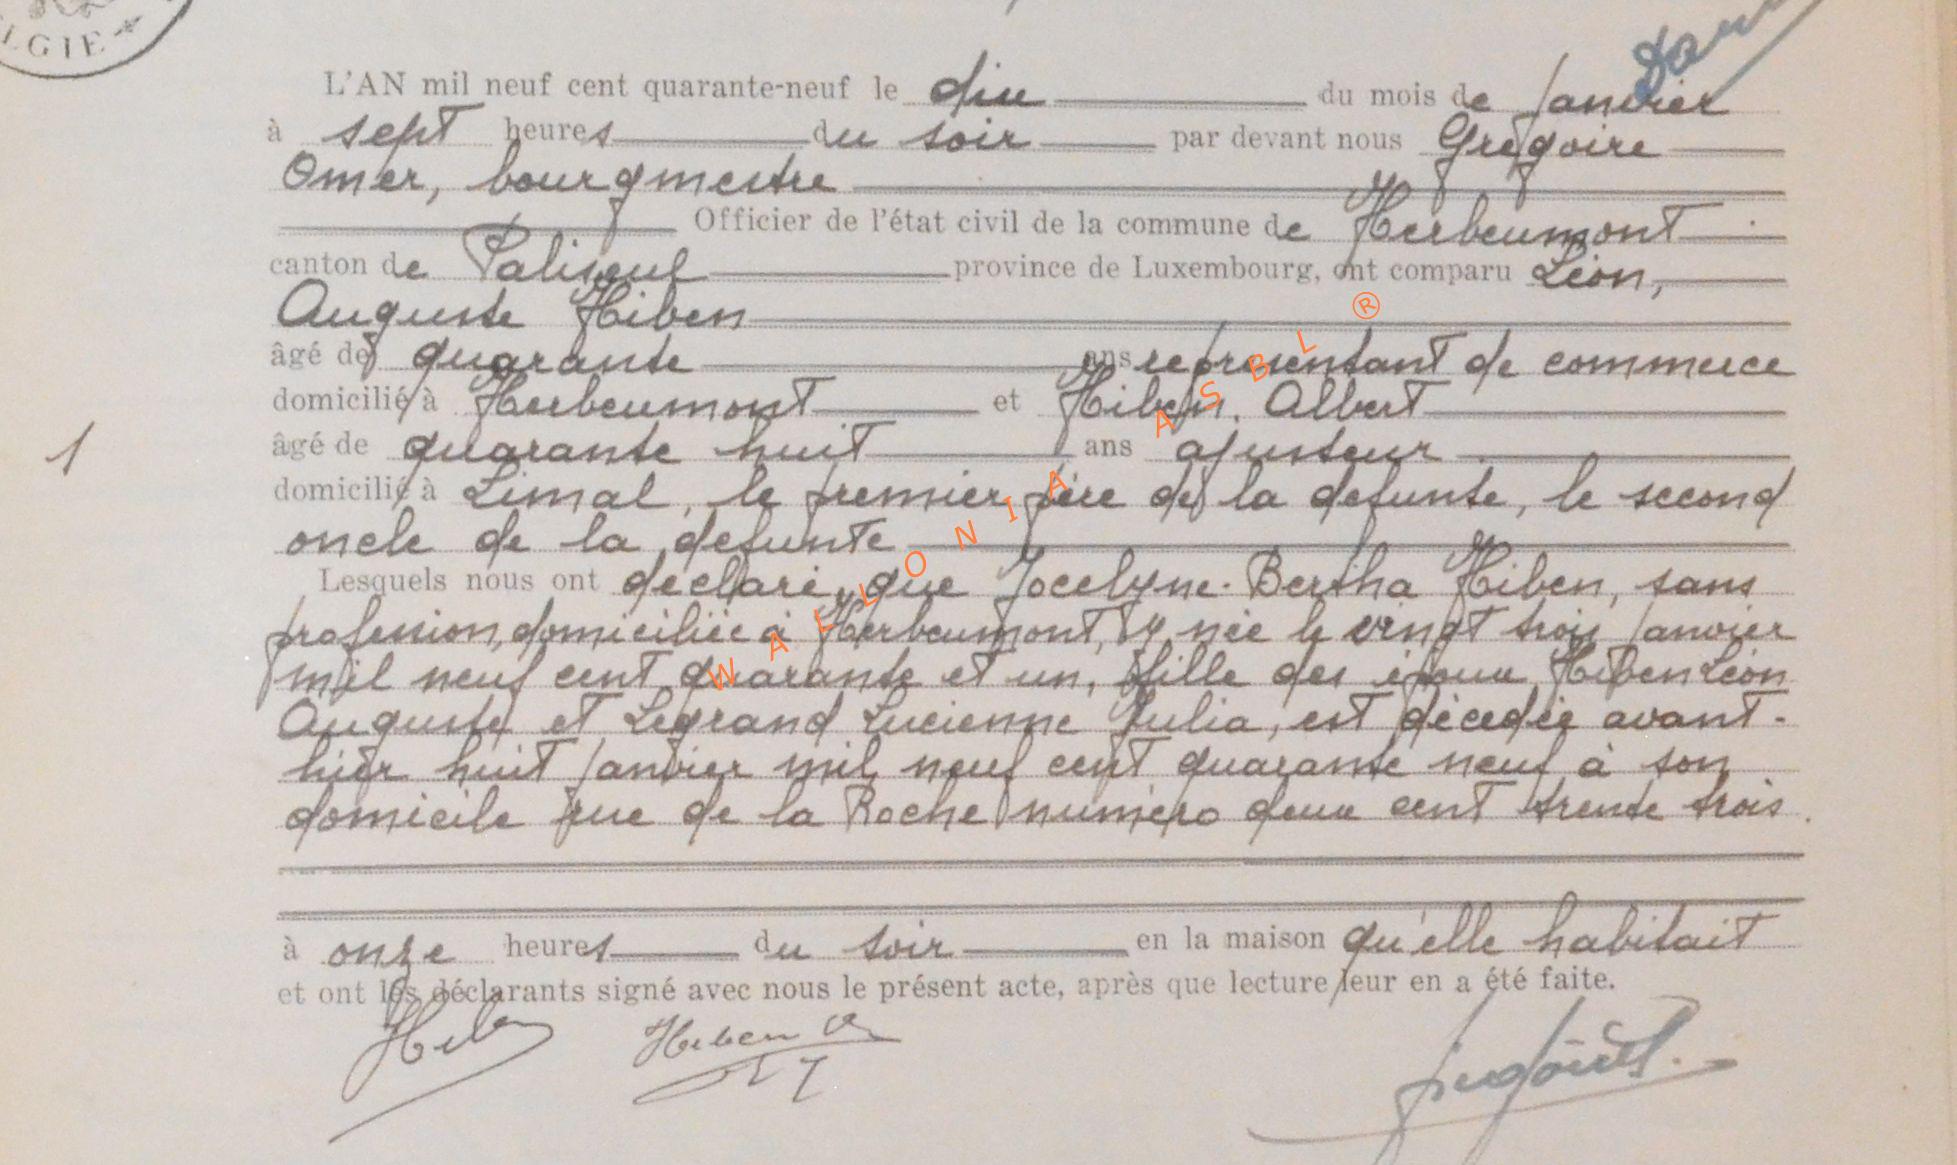 LGIE
L'AN mil neuf cent quarante-neuf le dix du mois de janvier
à sept heures du soir par devant nous Grégoire
Omer, bourgmestre
Officier de l'état civil de la commune de Herbeumont
canton de Paliseul province de Luxembourg, ont comparu Léon,
Auguste Hiben
âgé de quarante ans représentant de commerce
domicilié à Herbeumont et Hiben Albert
âgé de quarante huit ans ajusteur
1
domicilié à Limal, le premier père de la défunte, le second
oncle de la défunte
Lesquels nous ont déclaré que Jocelyne-Bertha Hiben, sans
profession, domiciliée à Herbeumont, y née le vingt trois janvier
mil neuf cent quarante et un, fille des époux Hiben Léon
Auguste et Legrand Lucienne Julia, est décédée avant-
hier huit janvier mil neuf cent quarante neuf à son
domicile rue de la Roche numéro deux cent trente trois.
à onze heures du soir en la maison qu'elle habitait
et ont les déclarants signé avec nous le présent acte, après que lecture leur en a été faite.
Hiben A
WALLONIA ASBL ®